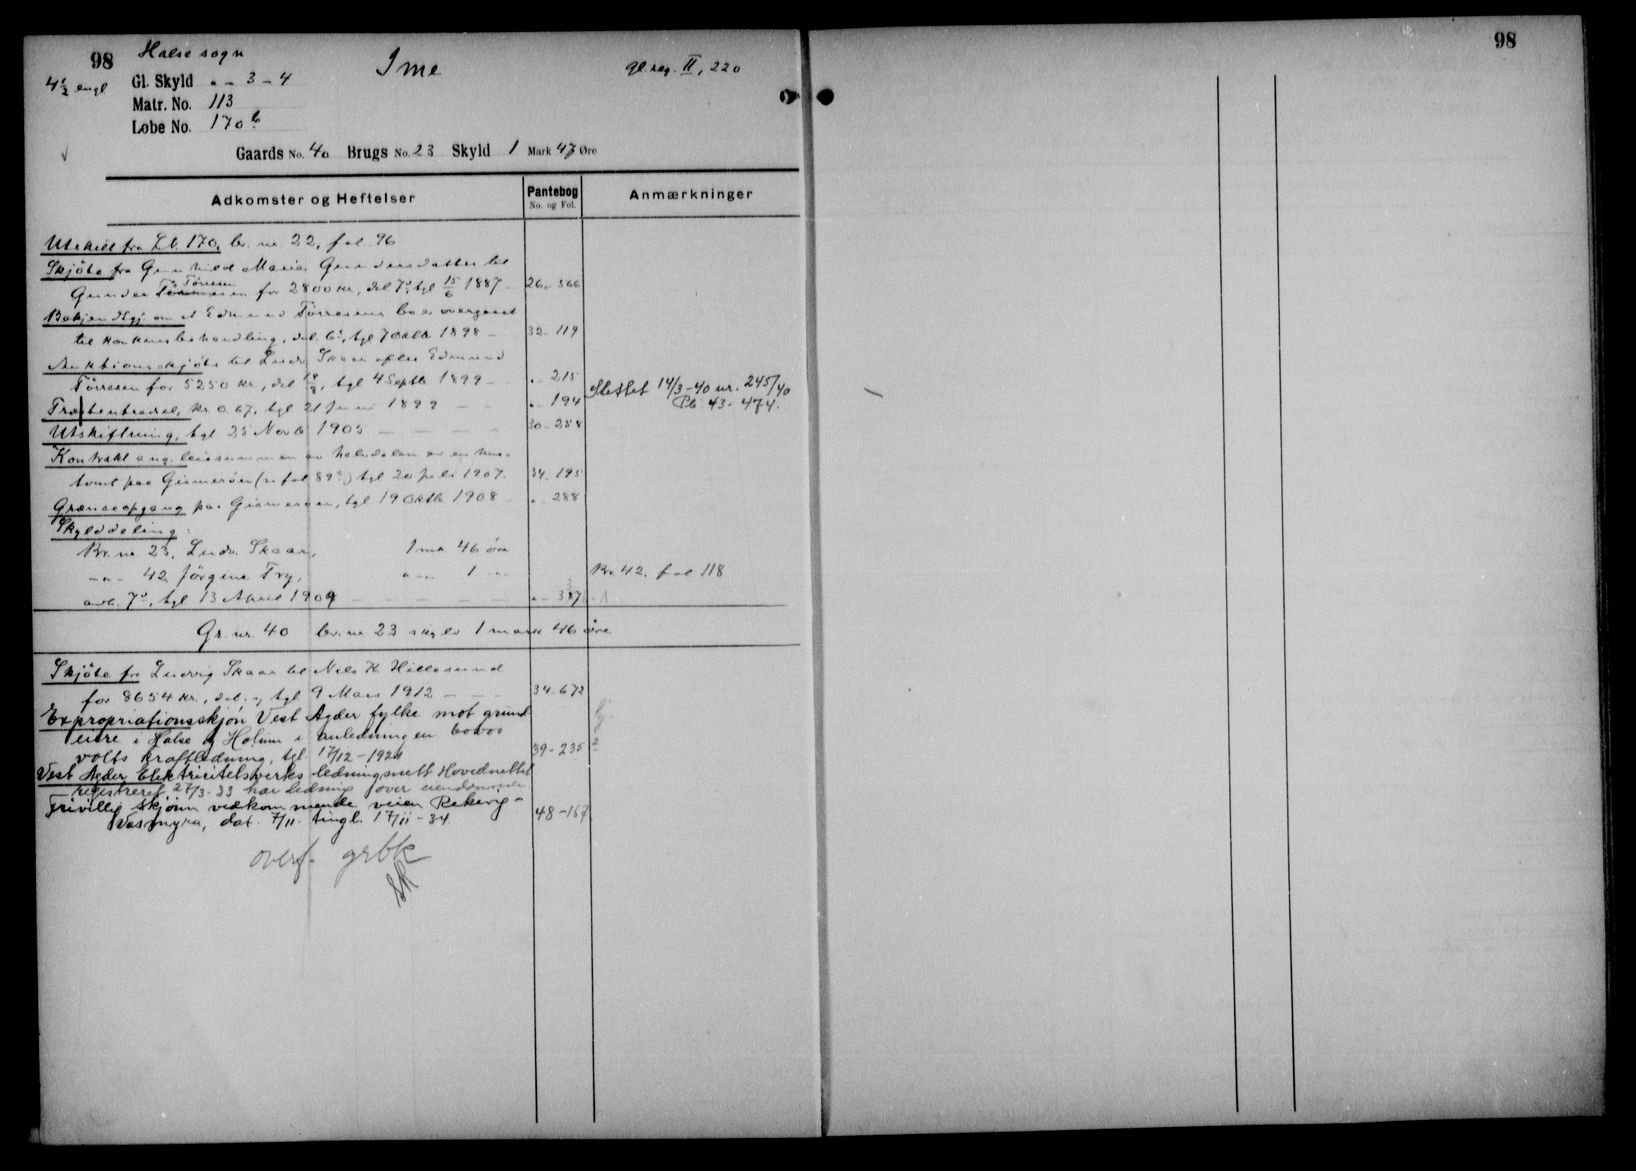 98
Halse sogn
Ime
gl. reg. II, 220
4 1/2 engl
Gl. Skyld " - 3 - 4
Matr. No. 113
Løbe No. 170 b
Gaards No. 40 Brugs No. 23 Skyld 1 Mark 47 Øre
Adkomster og Heftelser
Pantebog
No. og Fol.
Anmærkninger
Utskilt fra Lb. 170, br. nr. 22, fol. 96
Skjøte fra Gunhild Marie Gundersdatter til
Tørresen
Gunder for 2800 kr., dat. 7', tgl 15/6 1887 - 26 - 566
Bekjendtgj. om at Edmund Tørresens bo er overgaaet
til konkursbehandling, dat. 6', tgl 7 oktb 1898 - 32 - 119
Auktionsskjøte til Ludv. Skaar efter Edmund
Tørresen for 5250 kr., dat , tgl 4 Septb 1899 - " - 215
Slettet 14/3-40 nr. 245/40
Træstentredsel, kr. 0.67, tgl 21 Juni 1899 - - " - 194
Pb. 43 - 474.
Utskiftning, tgl 25 Novb 1905 - - - - 30 - 258
Kontrakt ang. leiesummen av halvdelen av en hus-
tomt paa Gismerøen (se fol 89) tgl 20 juli 1907. 34 - 195
Grænseopgang paa Gismerøen, tgl 19 Oktb 1908 - " - 288
Skylddeling:
Br. nr. 23, Ludv. Skaar, 1 mk. 46 øre
- " - 42, Jørgine Try, " - " 1 - " - Br. 42. fol 118
avh. 7', tgl 13 April 1909 - - - - - " - 387
Gr. nr. 40 br. nr. 23 skyld 1 mark 46 øre
Skjøte fra Ludvig Skaar til Nils K. Hillesund
for 8654 kr., dat. og tgl 9 Mars 1912 - - - 34 - 672
Expropriationsskjøn Vest Agder fylke mot grund-
eiere i Halse og Holum i anledning en 60000
volts kraftledning, tgl. 17/12 - 1921 39 - 235
Vest Agder Elektricitetsverks ledningsnett Hovednettet
registreret 27/3-33 har ledning over eiendommen
Frivillig skjønn vedkommende veien Rekevig-
Vasmyra, dat. 7/11. tingl. 17/11 - 34. 48 - 167
overf. grbk
98